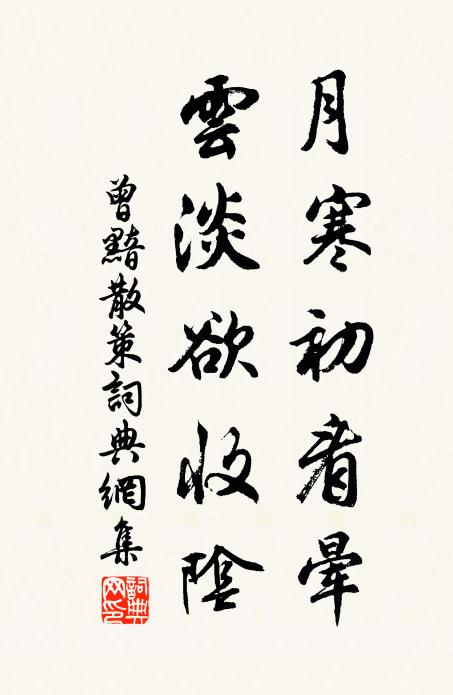 月寒初看暈
雲淡欲收陰
曾黯散策詞典網集
詞典網印